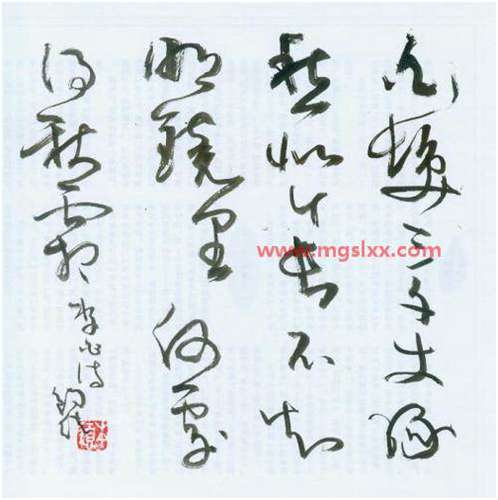 白髮三千丈緣
愁似个長不知
明鏡里何處
得秋霜 李白诗
www.mgslxx.com